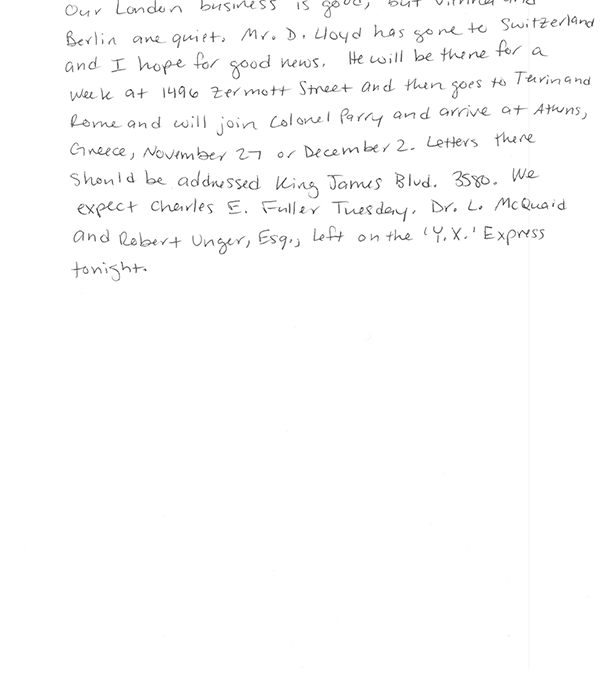 Our London business is good, but Vienna and
Berlin are quiet. Mr. D. Lloyd has gone to Switzerland
and I hope for good news. He will be there for a
week at 1496 Zermott Street and then goes to Turin and
Rome and will join Colonel Parry and arrive at Athens,
Greece, November 27 or December 2. Letters there
should be addressed King James Blvd. 3580. We
expect Charles E. Fuller Tuesday. Dr. L. McQuaid
and Robert Unger, Esq., left on the 'Y.X.' Express
tonight.